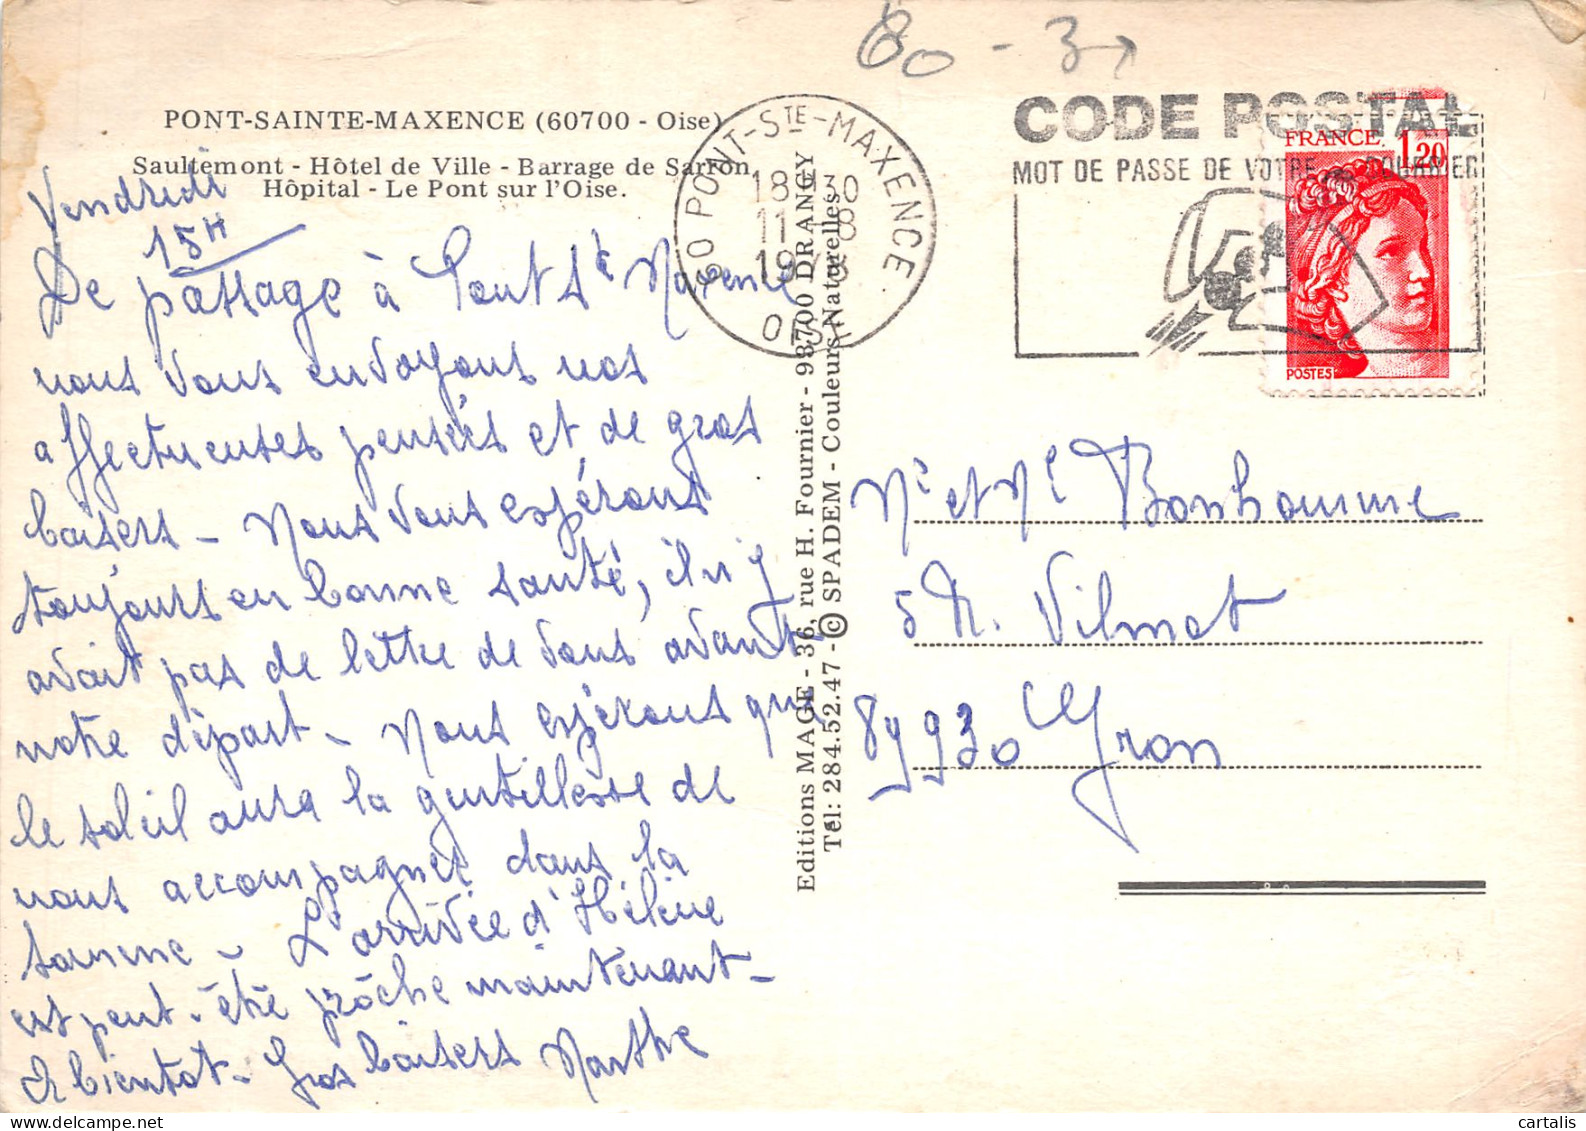 60 - 3
PONT-SAINTE-MAXENCE (60700 - Oise)
Saultemont - Hôtel de Ville - Barrage de Sarron,
Hôpital - Le Pont sur l'Oise.
Vendredi
15H
De passage à Pont Ste Maxence
nous vous envoyons nos
affectueuses pensées et de gros
baisers - Nous vous espérons
toujours en bonne santé, il n'y
avait pas de lettre de vous avant
notre départ - Nous espérons que
le soleil aura la gentillesse de
nous accompagner dans la
Somme - L'arrivée d'Hélène
est peut-être proche maintenant -
A bientot - Gros baisers Marthe
60 PONT-STE-MAXENCE
18H30
11 - 8
OISE
CODE POSTAL
MOT DE PASSE DE VOTRE COURRIER
FRANCE 1,20
POSTES
Editions MAGE - 36, rue H. Fournier - 93700 DRANCY
Tél: 284.52.47 - © SPADEM - Couleurs Naturelles
Mr et Me Bonhomme
5 R. Vilmot
89930 Gron
cartalis